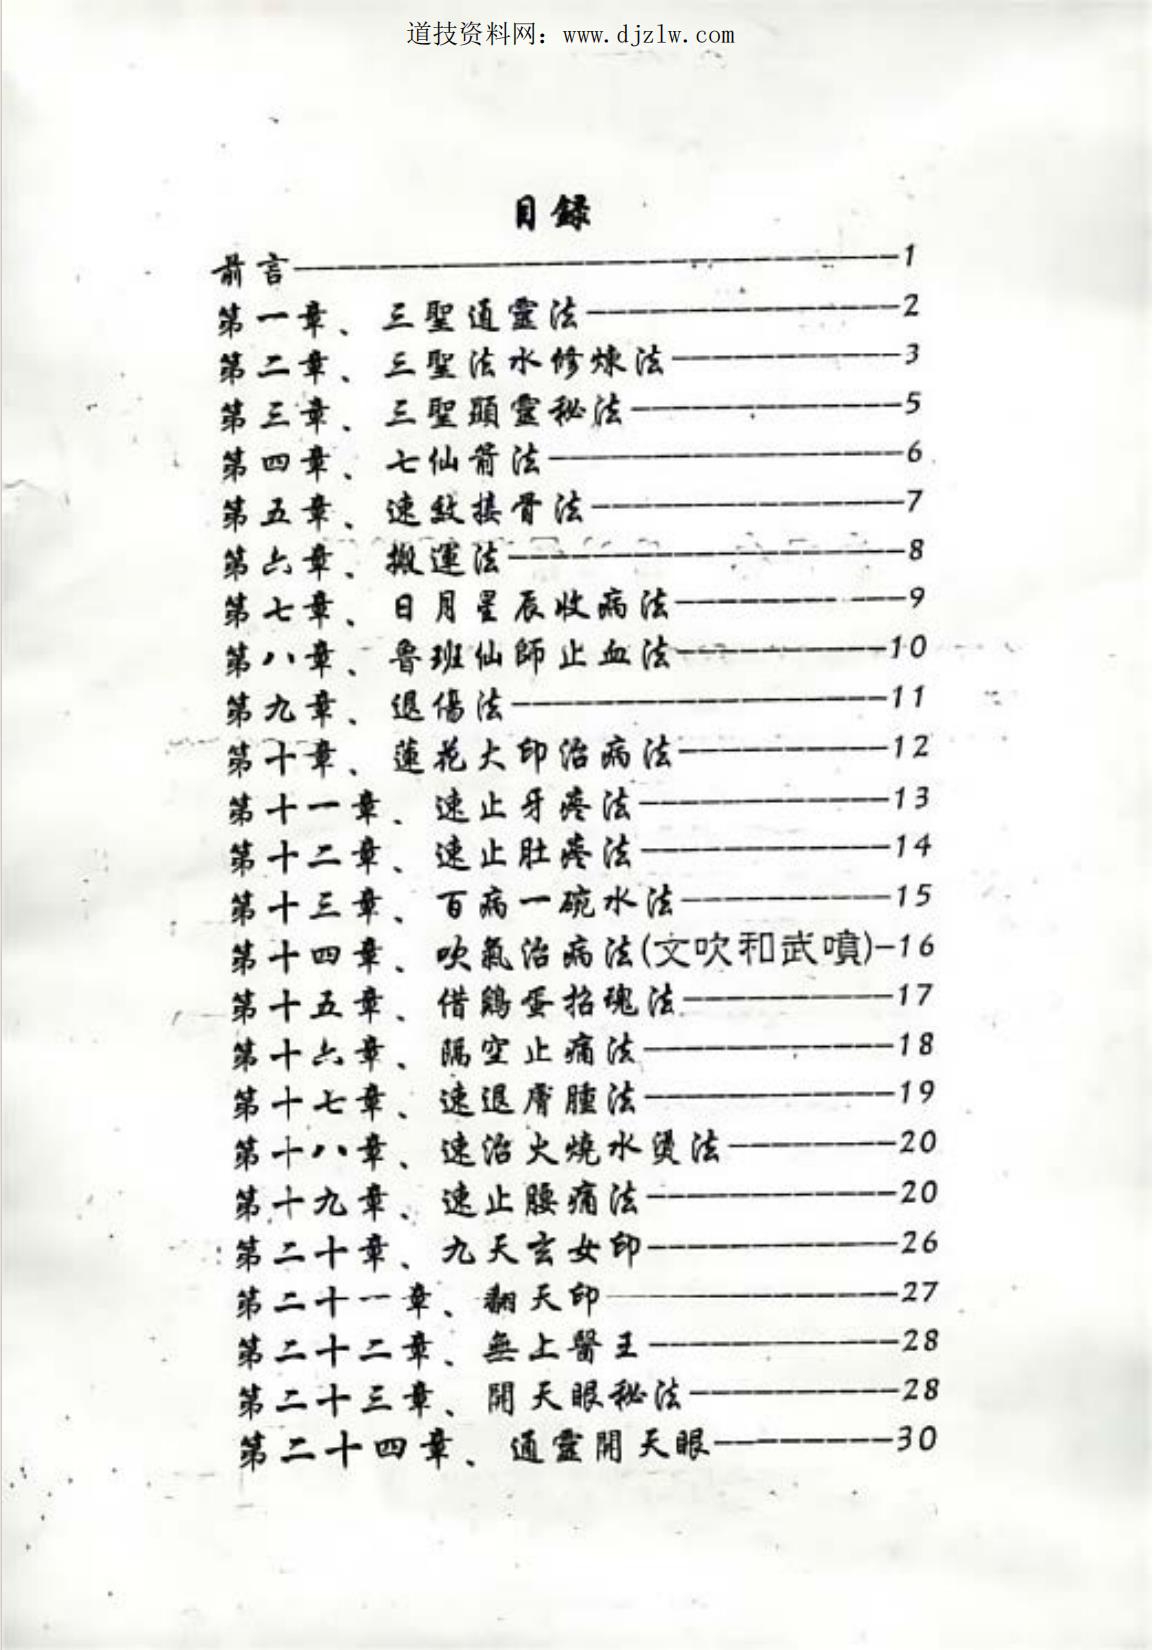 道技资料网：www.djzlw.com
目錄
前言——————————————1
第一章、三聖通靈法————————2
第二章、三聖法水修煉法——————3
第三章、三聖顯靈秘法———————5
第四章、七仙箭法—————————6
第五章、速紋接骨法————————7
第六章、搬運法——————————8
第七章、日月星辰收病法——————9
第八章、魯班仙師止血法—————10
第九章、退傷法—————————11
第十章、蓮花大印治病法—————12
第十一章、速止牙疼法——————13
第十二章、速止肚疼法——————14
第十三章、百病一碗水法—————15
第十四章、吹氣治病法(文吹和武噴)—16
第十五章、借鷄蛋招魂法—————17
第十六章、隔空止痛法——————18
第十七章、速退膚腫法——————19
第十八章、速治火燒水燙法————20
第十九章、速止腰痛法——————20
第二十章、九天玄女印——————26
第二十一章、翻天印———————27
第二十二章、無上醫王——————28
第二十三章、開天眼秘法—————28
第二十四章、通靈開天眼—————30